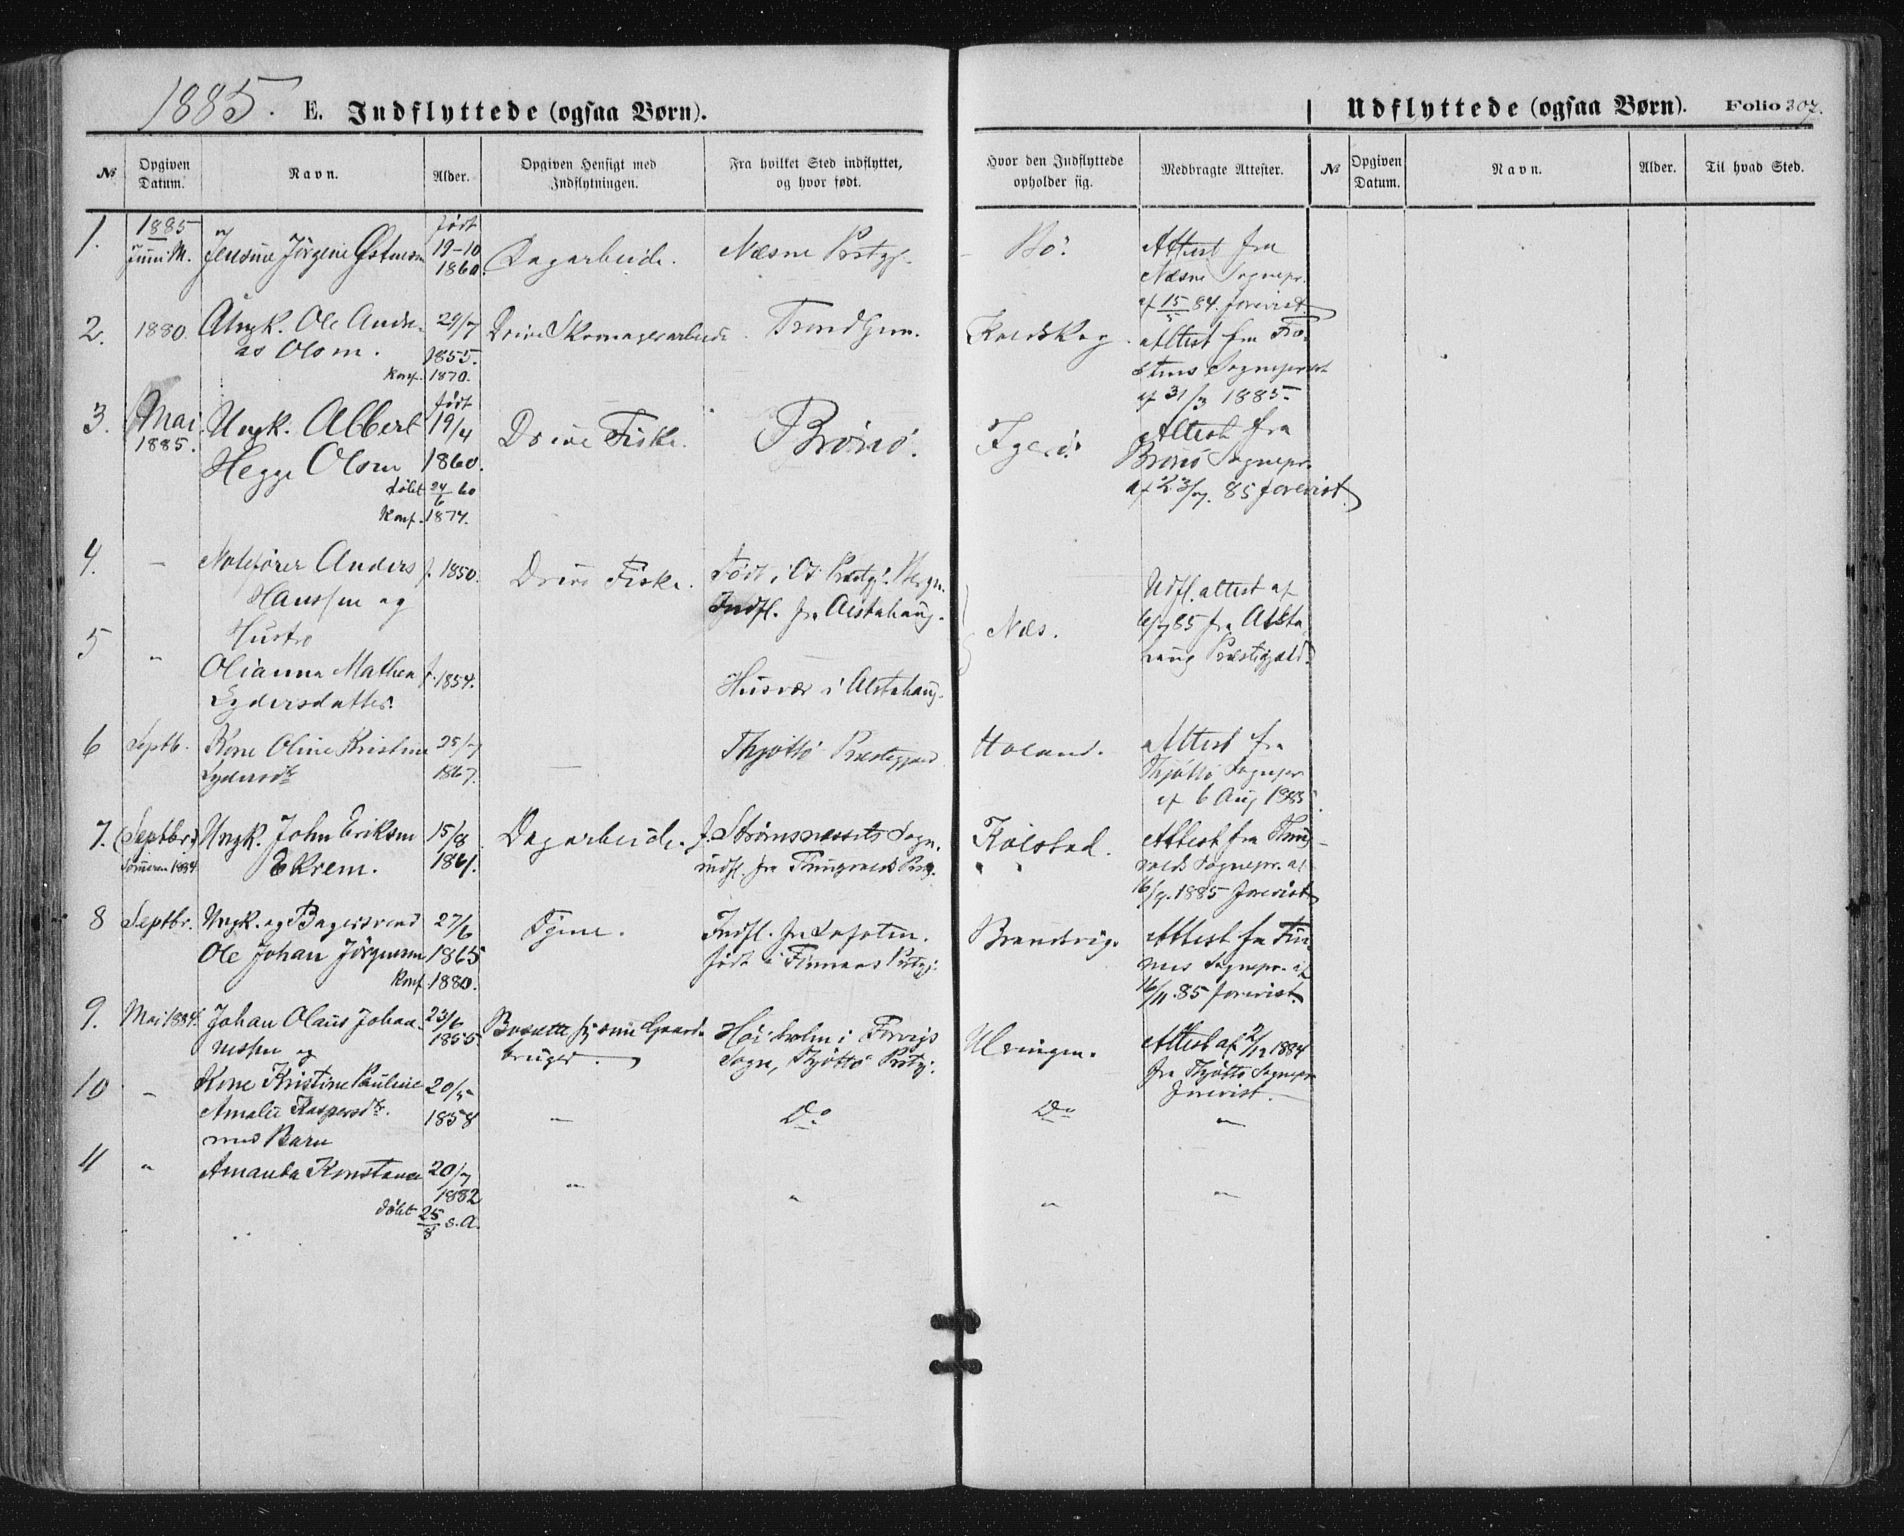 1885.
E. Indflyttede (ogsaa Børn).
Udflyttede (ogsaa Børn). Folio 307.
№ Opgiven Datum. Navn. Alder. Opgiven Hensigt med Indflytningen. Fra hvilket Sted indflyttet, og hvor født. Hvor den Indflyttede opholder sig. Medbragte Attester. № Opgiven Datum. Navn. Alder. Til hvad Sted.
1. 1885 Juni M. Jensine Jörgine født 19-10 1860. Dagarbeide. Næsne Prstgj. Bö. Attest fra
Næsne Sognepr.
af 15/5 84. forevist.
2. 1880. Ungk. Ole Andre- 29/7 Drive Skomagerarbeide. Trondhjem. Attest fra
as Olsen. 1855.
Konf. 1870.
Sognepræst
af 31/3 1885.
3. Mai 1885. Ungk. Albert født 19/4 Drive Fiske. Brönö. Igerö. Attest fra
Hegge Olsen 1860. Brönö Sognepr.
døbt 24/6 60 af 23/7. 85 forevist.
Konf. 1874.
4. — Anders f. 1850. Drive Fiske. Født i Os Præstgj. Bergen.
Hanssen og Indfl. fra Alstahaug.
Næs. Udfl. attest af
6/7 85 fra Alsta-
haug Præstegjeld.
5 " Hustro
Olianna Mathea f. 1854. Husvær i Alstahaug.
Lydersdatter.
6 Septb. Kone Oline Kristine 25/7 — Thjöttö Præstegjæld Attest fra
Lydersdtr 1867. Thjöttö Sognepr
af 6 Aug 1885.
7. (Septbr.) Ungk. John Eriksen 15/8 Dagarbeide. f. Strømsnæssets Sogn. Kölstad. Attest fra
Sommeren 1884 Ekrem. 1861. indfl. fra Prstg. " " Sognepr. af
16/9. 1885 forevist
8 Septbr. Ungk. og Bagersvend 27/6 Tjene. Indfl. fra Lofoten. Brandvig. Attest fra Fin-
Ole Johan Jörgensen 1865 født i Finnaas Prstgj: nes Sognepr. af
Konf. 1880. 16/11. 85 forevist.
9. Mai 1884. Johan Olaus Johan- 23/6 Bosætte sig som Gaard- Höiholm i Forvigs Ulvingen. Attest af 2/12 1884
nessen og 1855 bruger. Sogn, Thjöttö Prstgj: fra Thjöttö Sognepr
forevist.
10 — Kone Kristine Pauline 20/5 — Do Do "
Amalie Kaspersdtr. 1858
med Barn
11 " Amanda Konstance 20/7 " " " "
1882
døbt 25/8 s.A.